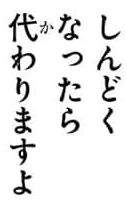 しんどく
なったら
代わりますよ